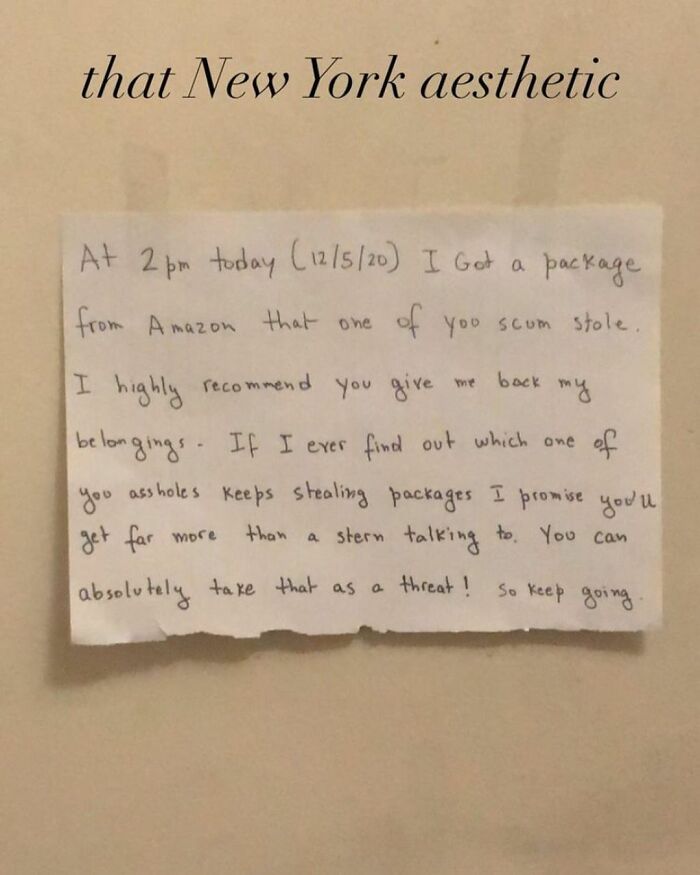 that New York aesthetic
At 2pm today (12/5/20) I Got a package
from Amazon that one of you scum stole.
I highly recommend you give me back my
belongings. If I ever find out which one of
you assholes keeps stealing packages I promise you'll
get far more than a stern talking to. You can
absolutely take that as a threat! So keep going.